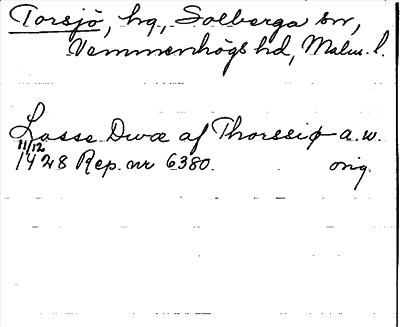 Torsjö, hg, Solberga sn,
Vemmenhögs hd, Malm. l.
Lasse Duæ af Thorssiø a.w.
11/12
1428 Rep. nr 6380. orig.